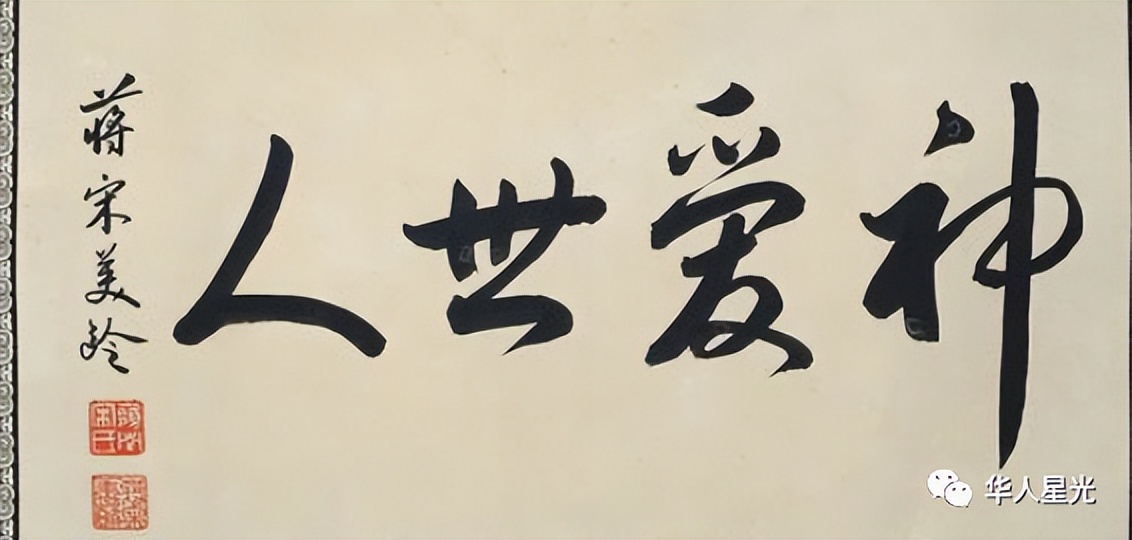 神爱世人
蒋宋美龄
华人星光